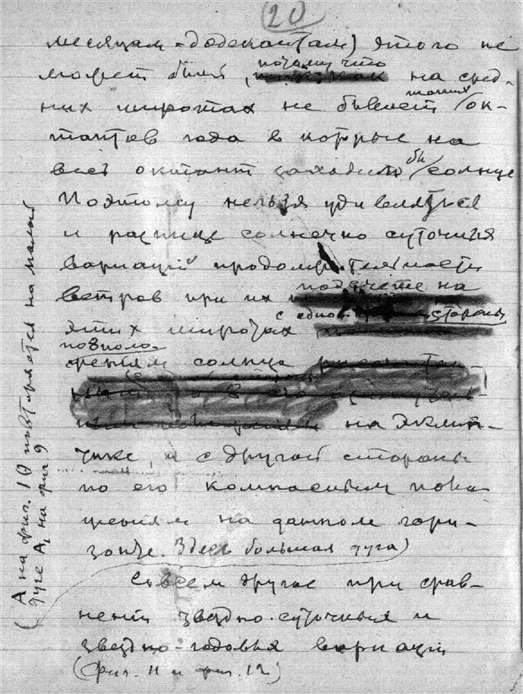 20
месяцам-додекантам) этого не
может быть, потому что на сред-
них широтах не бывает таких ок-
тантов года в которые на
весь октант заходило бы солнце
Поэтому нельзя удивляться
и разнице солнечно суточных
вариаций продолжительности
ветров при их подсчете на
этих широтах с одной стороны
по положе-
ниям солнца
на эклип-
тике, и с другой стороны
по его компасным поло-
жениям на данном гори-
зонте. Здесь большая дуга)
Совсем другое при срав-
нении звездно-суточных и
звездно-годовых вариаций
(Фиг. 11 и фиг. 12)
(А на фиг. 10 повторяется на малой
дуге А, на фиг. 9